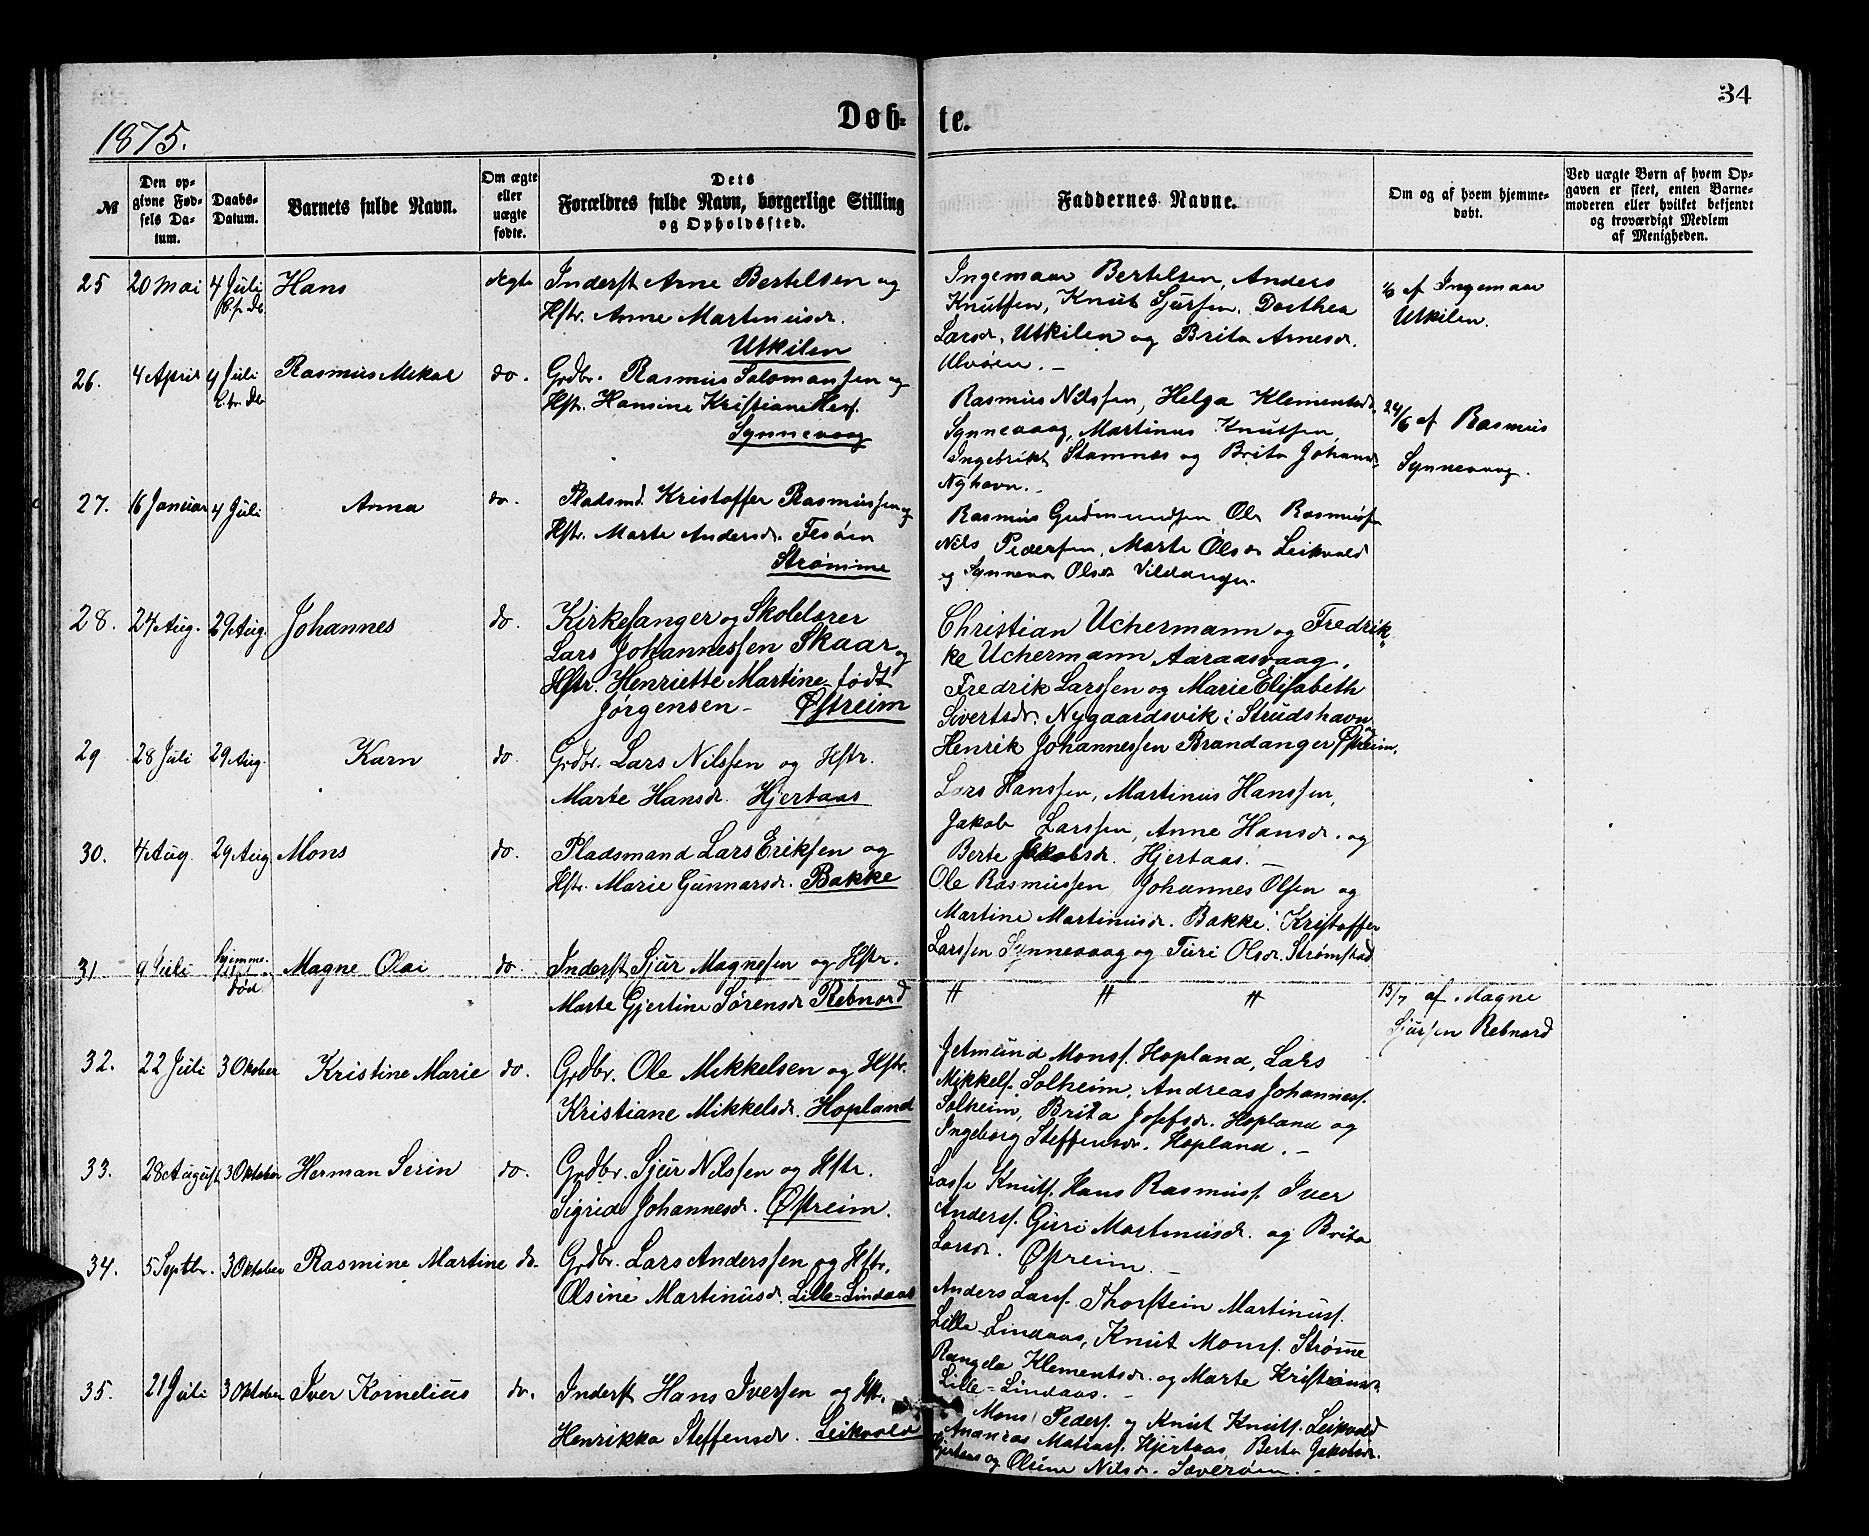 34
Døb- te.
1875.
№
Den opgivne Fødsels Datum.
Daabs-Datum.
Barnets fulde Navn.
Om ægte eller uægte fødte.
Dets Forældres fulde Navn, borgerlige Stilling og Opholdssted.
Faddernes Navne.
Om og af hvem hjemmedøbt.
Ved uægte Børn af hvem Opgaven er skeet, enten Barnemoderen eller hvilket bekjendt og troværdigt Medlem af Menigheden.
25 20 Mai 4 Juli Hans ægte Inderst Arne Bertelsen og
Hstr. Anne Martinusdr.
Utkilen
Ingemaar Bertelsen, Anders
Knutsen, Knut Sjursen, Dorthea
Larsdr. Utkilen og Brita Arnesdr.
Alvøen. -
af Ingemaar
Utkilen.
26. 4 April 4 Juli Rasmus Mikal do. Grdbr. Rasmus Salomonsen og
Hstr. Hansine Kristiane
Synnevaag
Rasmus Nilssen, Helga Klementsdr.
Synnevaag, Martinus Knutsen
Ingebrikt Stamnes og Brita Johannesdr.
Nyhavn. -
24/6 af Rasmus
Synnevaag.
27. 16 Januar 4 Juli Anna do. Pladsmd. Kristoffer Rasmussen og
Hstr. Marte Andersdr. Fesøen
Strømme
Rasmus Gudmundsen Ole Rasmuss.
Nils Pedersen, Marte Olsdr Leikvold
og Synneva Olsdr Vildanger.
28. 24 Aug. 29 Aug. Johannes do. Kirkesanger og Skolelærer
Lars Johannessen Skaar og
Hstr. Henriette Martine født
Jørgensen - Østreim
Christian Uchermann og Fredrik-
ke Uchermann Aaraasvaag,
Fredrik Larssen og Marie Elisabeth
Sivertsdr. Nygaardsvik i Strudshavn og
Henrik Johannessen Brandanger Østreim.
29 28 Juli 29 Aug. Karn do Grdbr. Lars Nilssen og Hstr.
Marte Hansdr. Hjertaas
Lars Hanssen, Martinus Hanssen,
Jakob Larssen, Anne Hansdr. og
Berte Jakobsdr. Hjertaas. -
30. 4 Aug. 29 Aug Mons do. Pladsmand Lars Eriksen og
Hstr. Marie Gunnarsdr. Bakke
Ole Rasmussen Johannes Olsen og
Martine Martinusdr. Bakke. Kristoffer
Larssen Synnevaag og Turi Olsdr. Strømstad
31 9 Juli Hjemme-
døbt og
død. Magne Olai do. Inderst Sjur Magnesen og Hstr.
Marte Gjertine Sørensdr Rebnord
〃 〃 〃
15/7 af Magne
Sjursen Rebnord
32. 22 Juli 3 Oktober Kristine Marie do. Grdbr. Ole Mikkelsen og Hstr.
Kristiane Mikkelsdr. Hopland
Jetmund Monss. Hopland, Lars
Mikkels. Solheim, Andreas Johanness.
Solheim, Brita Josefsdr. Hopland og
Ingeborg Steffensdr. Hopland. -
33. 28 August 3 Oktober Herman Serin do. Grdbr. Sjur Nilssen og Hstr.
Sigrid Johannesdr. Østreim.
Lasse Knuts. Hans Rasmuss. Iver
Anderss. Guri Martinusdr. og Brita
Larsdr. Østreim. -
34. 5 Septbr. 3 Oktober Rasmine Martine do. Grdbr. Lars Anderssen og Hstr.
Olsine Martinusdr. Lille-Lindaas
Anders Larss. Thorstein Martinuss.
Lille-Lindaas, Knut Monss. Strømme
Rangela Klementsdr. og Marte Kristiansdr.
Lille-Lindaas. -
35. 21 Juli 3 Oktober Iver Kornelius do. Inderst Hans Iversen og Hst.
Henrikka Steffensdr. Leikvold
Mons Peders. og Knut Knuts. Leikvold
Andreas Matiass. Hjertaas, Berta Jakobsdr.
Hjertaas og Olsine Nilsdr. Sæverøen. -